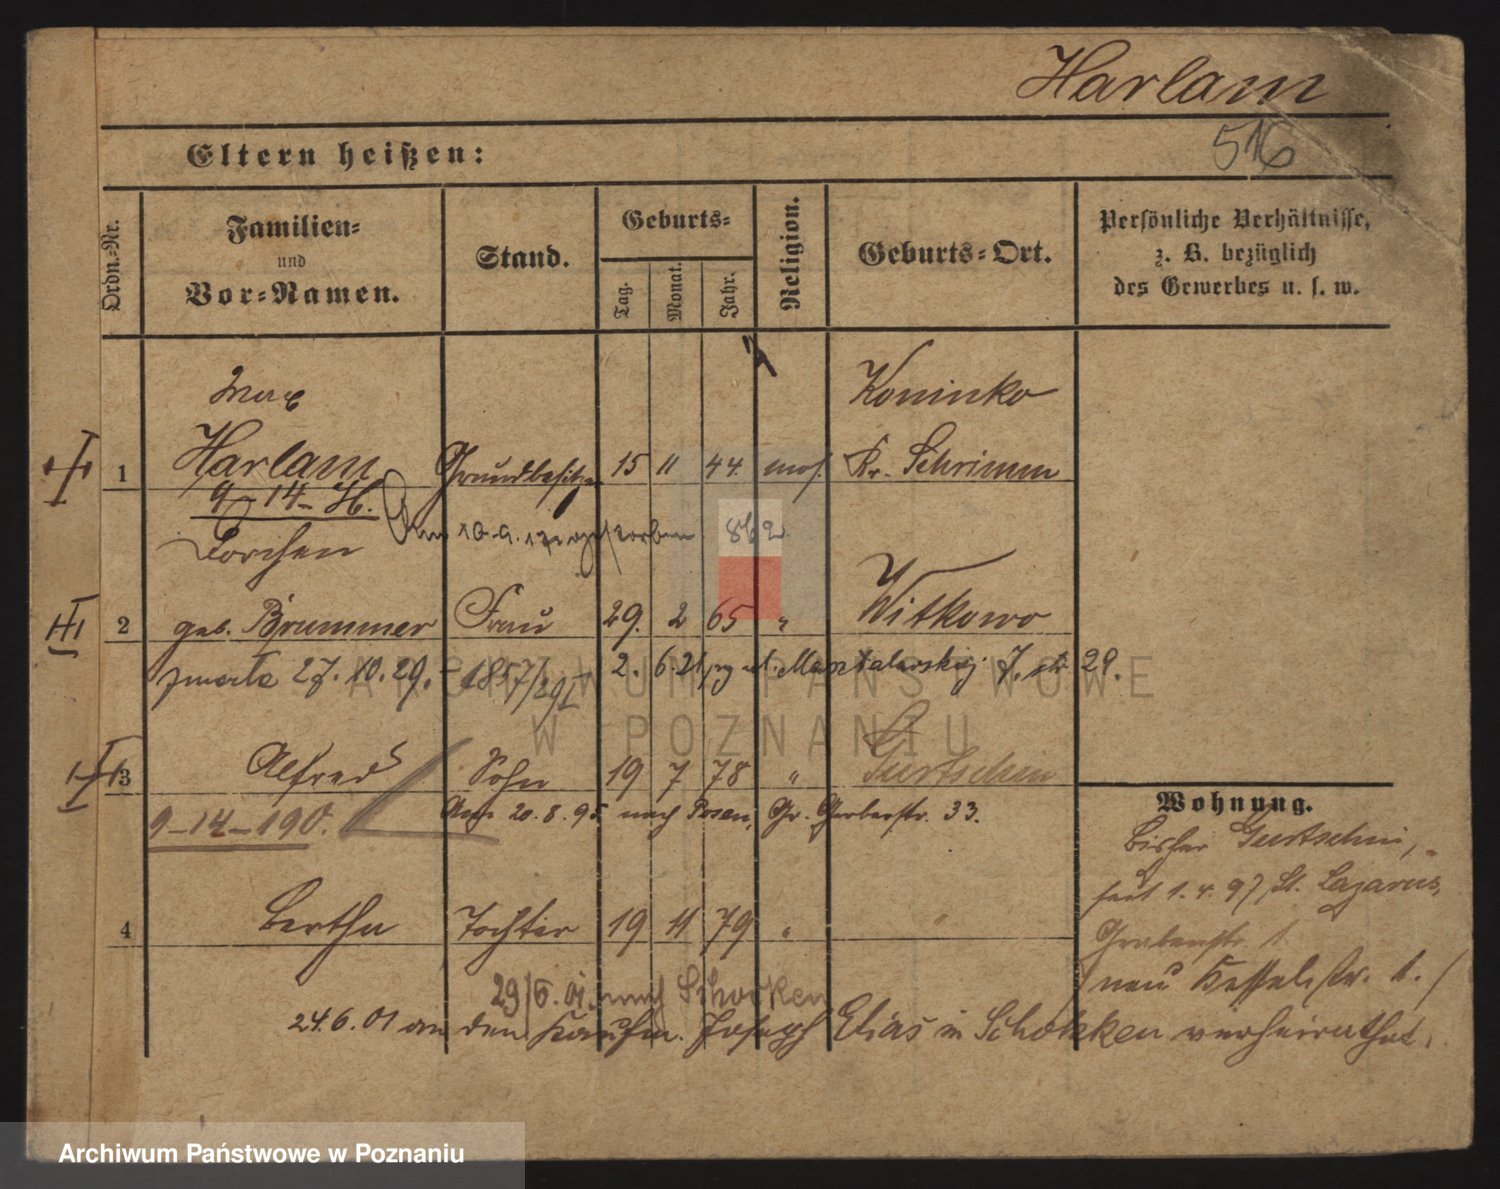 Harlam
516
Eltern heißen:
Ordn.-Nr.
Familien-
und
Vor-Namen.
Stand.
Geburts-
Tag.
Monat.
Jahr.
Religion.
Geburts-Ort.
Persönliche Verhältnisse,
z. B. bezüglich
des Gewerbes u. s. w.
Max
Koninko
1 Harlam Grundbesitzer 15 11 44. mos. Kr. Schrimm
9-14-H.
Am 10.9. gestorben 862
Dorchen
2 geb. Brummer Frau 29. 2 65 " Witkowo
zmarła 27.10.29. - 1857/29 I 2. 6. 21 Marszalewskiej 7. 29.
3 Alfred Sohn 19 7 78 " Gurtschin
9-14-190.
Am 20.8.95 nach Posen, Gr. Gerberstr. 33.
Wohnung.
bisher Gurtschin,
seit 1.4.97 St. Lazarus,
Grabenstr. 1
neu Kesselstr. 1.
4 Bertha Tochter 19 11 79 "
29/6.01. nach Schocken
24.6.01 an den Kaufm. Joseph Elias in Schokken verheirathet.
ARCHIWUM PAŃSTWOWE
W POZNANIU
Archiwum Państwowe w Poznaniu